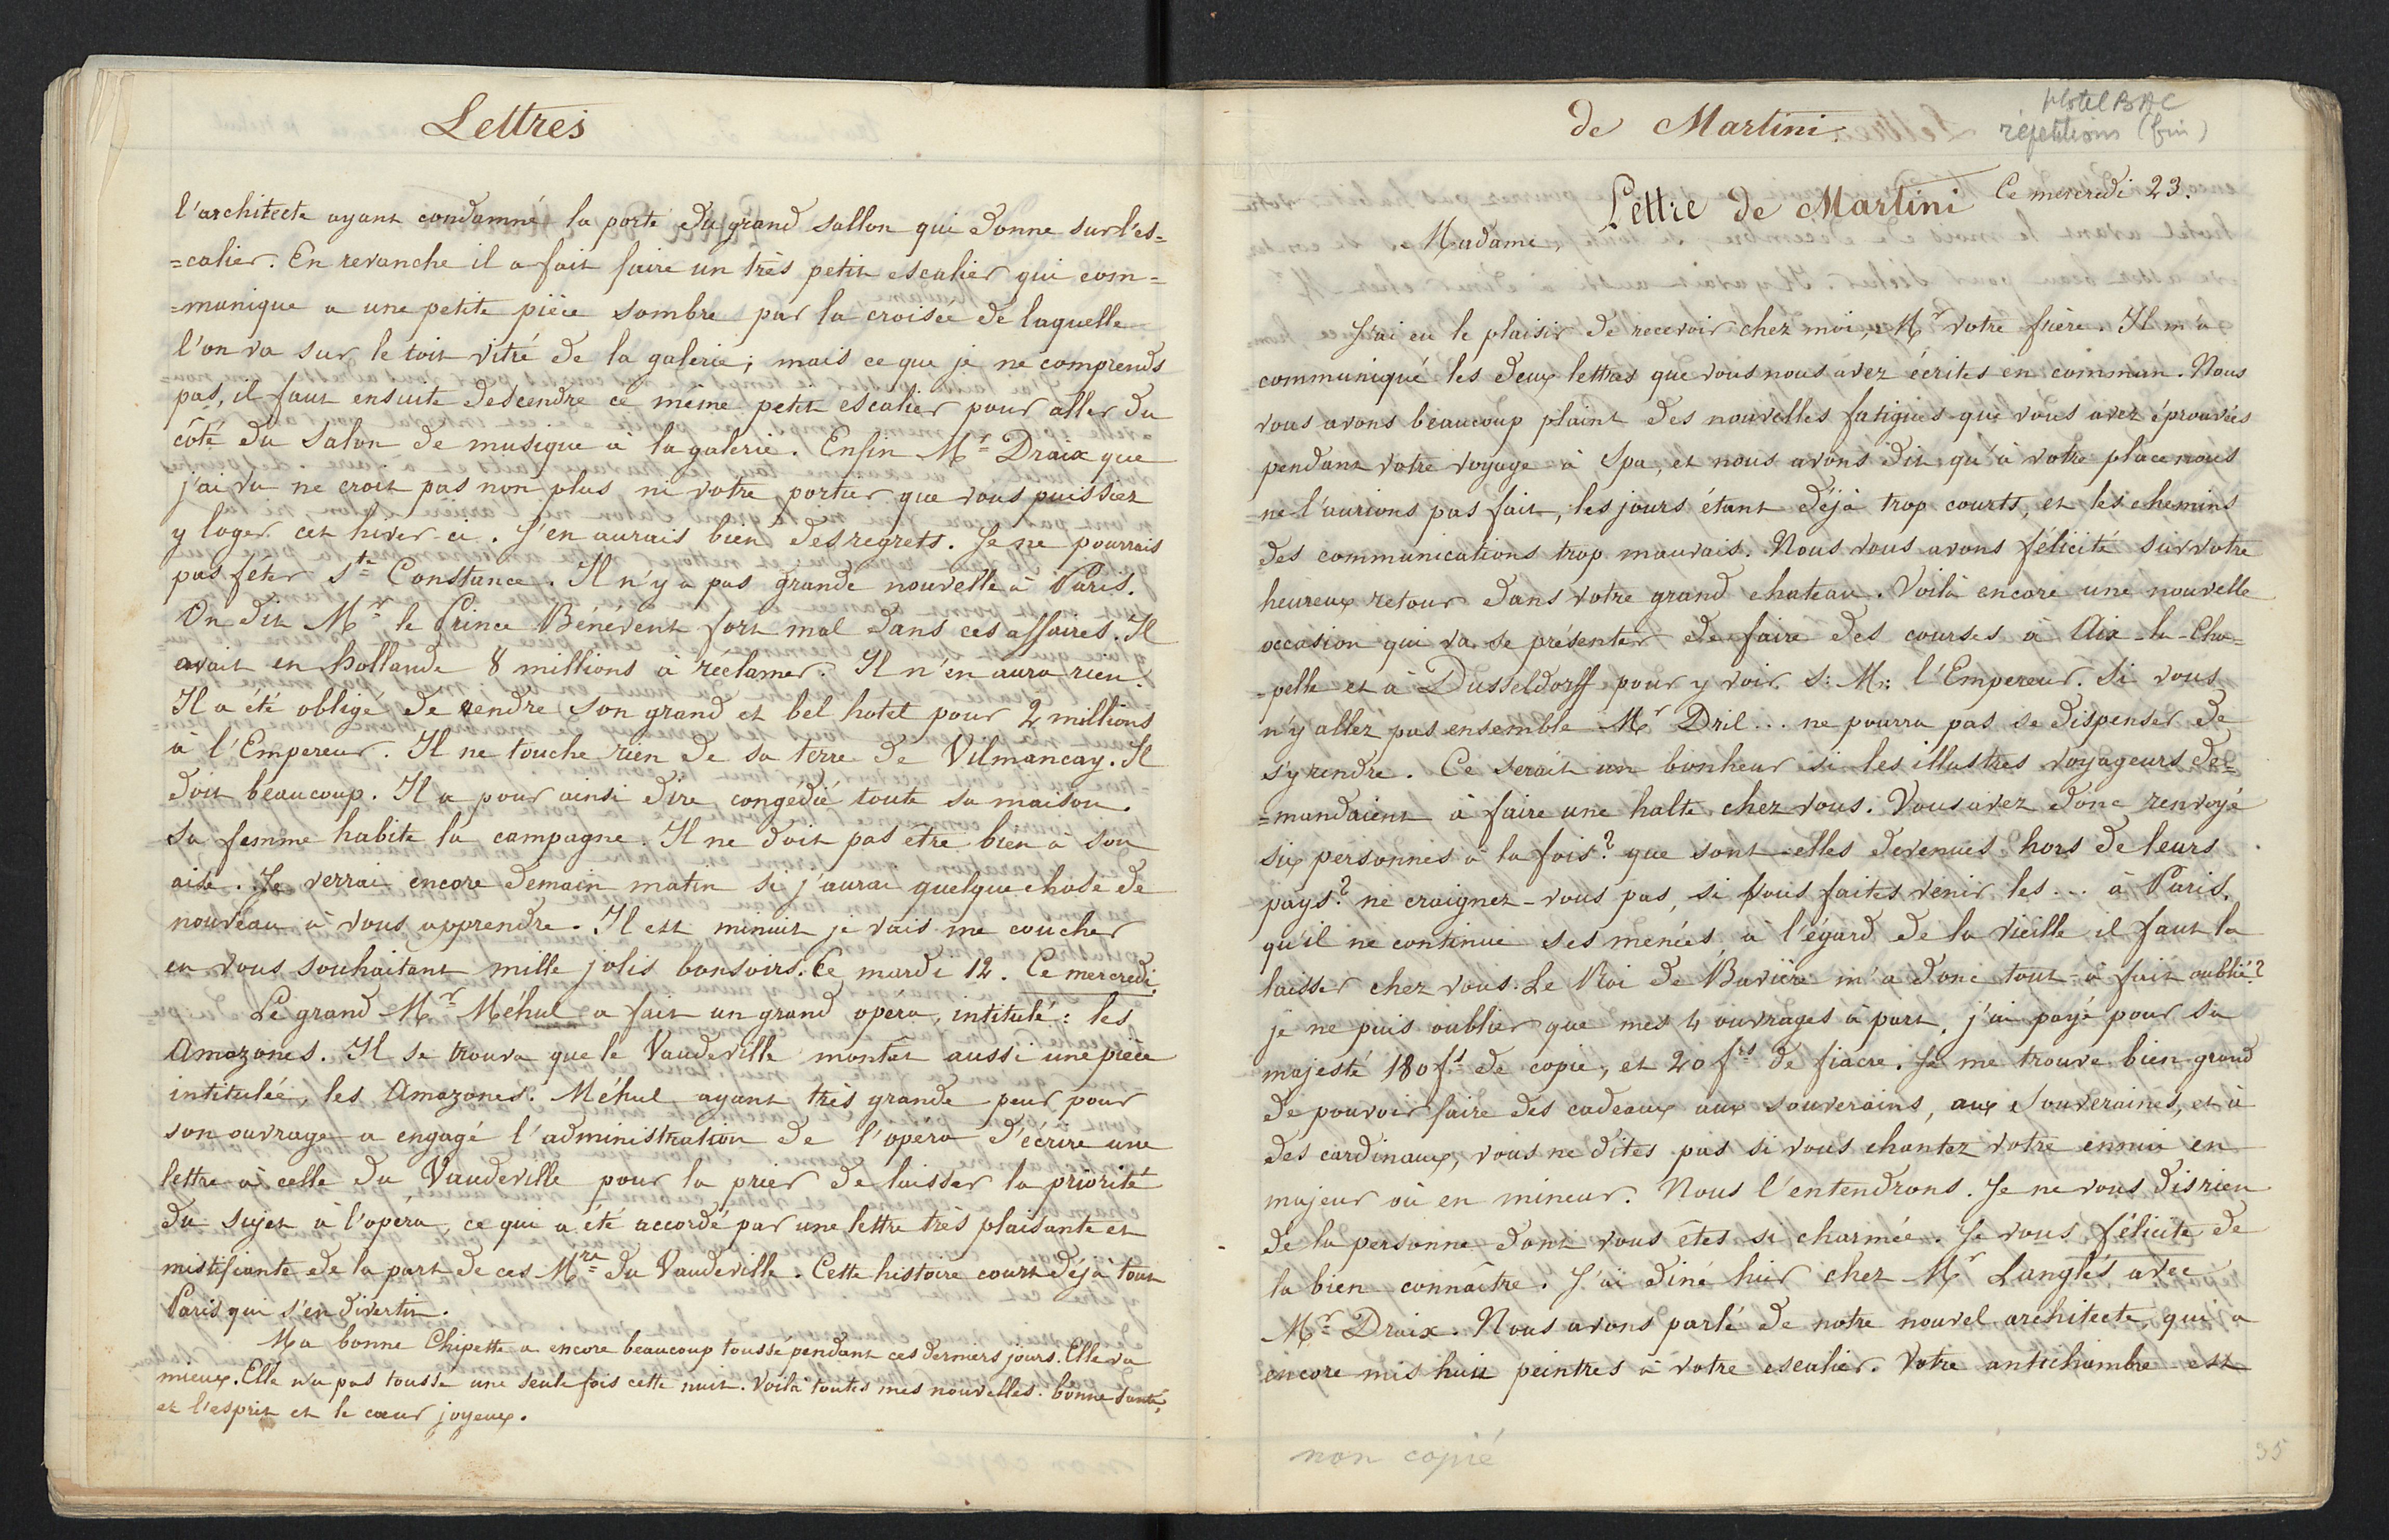 Lettres
l'architecte ayant condamné la porte du grand sallon qui donne sur l'es=
=calier. En revanche il a fait faire un très petit escalier qui com=
=munique a une petite pièce sombre par la croisée de laquelle
l'on va sur le toit vitré de la galerie; mais ce que je ne comprends
pas, il faut ensuite descendre ce même petit escalier pour aller du
côté du salon de musique à la galerie. Enfin Mr Draix que
j'ai vu ne croit pas non plus ni votre portier que vous puissiez
y loger cet hiver-ci. J'en aurais bien des regrets. Je ne pourrais
pas feter Ste Constance. Il n'y a pas grande nouvelle à Paris.
On dit Mr le Prince Bénévent fort mal dans ces affaires. Il
avait en hollande 8 millions à réclamer. Il n'en aura rien.
Il a été obligé de vendre son grand et bel hotel pour 2 millions
à l'Empereur. Il ne touche rien de sa terre de Vilmancay. Il
doit beaucoup. Il a pour ainsi dire congédié toute sa maison.
Sa femme habite la campagne. Il ne doit pas être bien à son
aise. Je verrai encore demain matin si j'aurai quelque chose de
nouveau à vous apprendre. Il est minuit je vais me coucher
en vous souhaitant mille jolis bonsoirs. Ce mardi 12. Ce mercredi.
Le grand Mr Méhul a fait un grand opéra, intitulé: les
Amazones. Il se trouva que le Vaudeville montât aussi une pièce
intitulée, les Amazones. Méhul ayant très grande peur pour
son ouvrage a engagé l'administration de l'opéra d'écrire une
lettre à celle du Vaudeville pour la prier de laisser la priorité
du sujet à l'opéra, ce qui a été accordé par une lettre très plaisante et
mistifiante de la part de ces Mrs du Vaudeville. Cette histoire court déjà tout
Paris qui s'en divertit.
Ma bonne Chipette a encore beaucoup toussé pendant ces derniers jours. Elle va
mieux. Elle n'a pas toussé une seule fois cette nuit. Voilà toutes mes nouvelles. bonne santé,
et l'esprit et le cœur joyeux.
de Martini.
Hotel BAC
répétitions (fin)
Lettre de Martini Ce mercredi 23.
Madame,
J'ai eu le plaisir de recevoir chez moi, Mr votre frère. Il m'a
communiqué les deux lettres que vous nous avez écrites en commun. Nous
vous avons beaucoup plaint des nouvelles fatigues que vous avez éprouvées
pendant votre voyage à Spa, et nous avons dit qu'à votre place nous
ne l'aurions pas fait, les jours étant déjà trop courts, et les chemins
des communications trop mauvais. Nous vous avons félicité sur votre
heureux retour dans votre grand chateau. Voilà encore une nouvelle
occasion qui va se présenter de faire des courses à Aix-la-Cha=
=pelle et à Dusseldorff pour y voir S: M: l'Empereur. Si vous
n'y allez pas ensemble Mr Dril... ne pourra pas se dispenser de
s'y rendre. Ce serait un bonheur si les illustres voyageurs de=
=mandaient à faire une halte chez vous. Vous avez donc renvoyé
six personnes à la fois? que sont-elles devenues hors de leurs
pays? ne craignez-vous pas, si vous faites venir les... à Paris,
qu'il ne continue ses menées, à l'égard de la vieille il faut la
laisser chez vous. Le Roi de Bavière m'a donc tout-à fait oublié?
je ne puis oublier que mes 4 ouvrages à part, j'ai payé pour sa
majesté 180 fs de copie, et 20 fs de fiacre. Je me trouve bien grand
de pouvoir faire des cadeaux aux souverains, aux Souveraines, et à
des cardinaux, vous ne dites pas si vous chantez votre ennui en
majeur où en mineur. Nous l'entendrons. Je ne vous dis rien
de la personne dont vous êtes si charmée. Je vous félicite de
la bien connaître. J'ai diné hier chez Mr Langlés avec
Mr Draix. Nous avons parlé de notre nouvel architecte, qui a
encore mis huit peintres à votre escalier. Votre antichambre est
non copié
35